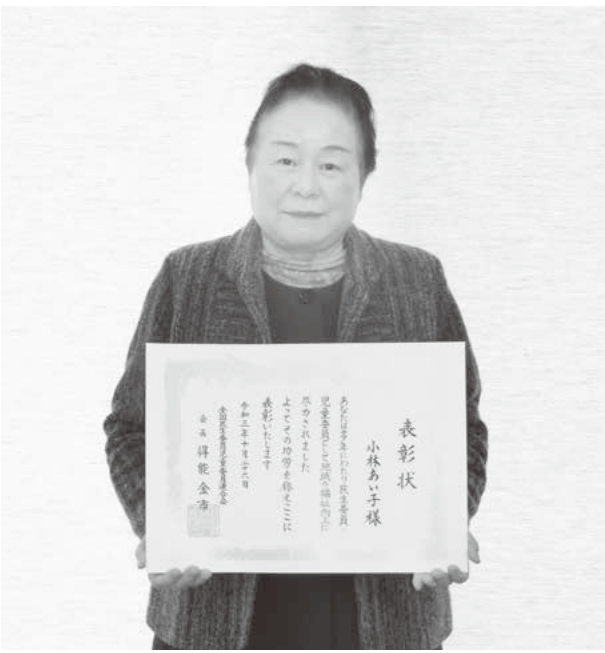 表彰状
小林あい子様
あなたは多年にわたり民生委員・
児童委員として地域の福祉向上に
尽力されました
よってその功労を称えここに
表彰いたします
令和三年十月二十六日
全国民生委員児童委員連合会
会長 得能金市